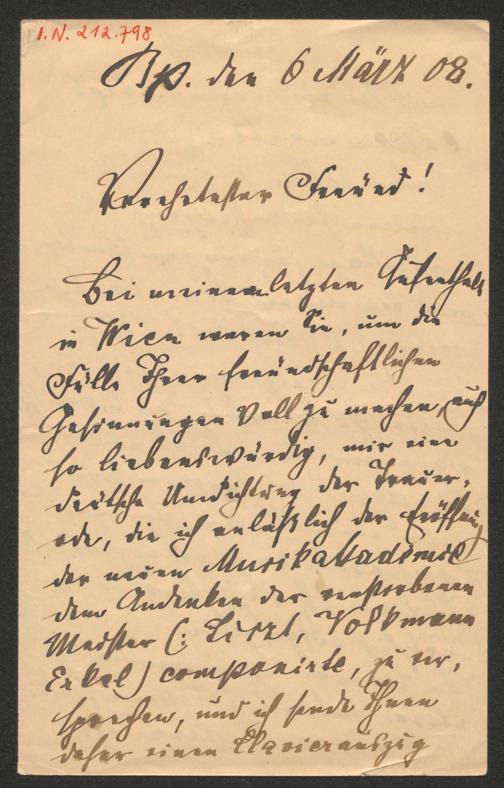 I.N. 212.798
Bp. den 6 März 08.
Verehrtester Freund!
Bei meinem letzten Aufenthalt
in Wien waren Sie, um die
Fülle Ihrer freundschaftlichen
Gesinnungen voll zu machen, auch
so liebenswürdig, mir eine
deutsche Umdichtung der Trauer-
ode, die ich anläßlich der Eröffnung
der neuen Musikakademie
dem Andenken der verstorbenen
Meister (: Liszt, Volkmann
Erkel) componirte, zu ver-
sprechen, und ich sende Ihnen
daher einen Clavierauszug